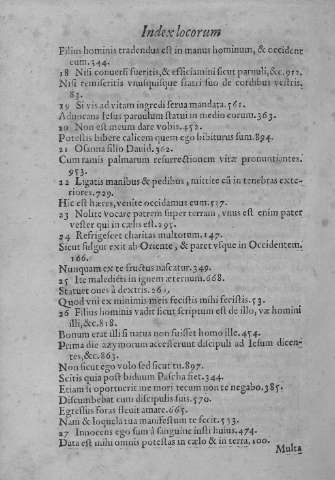 Index locorum
Filius hominis tradendus est in manus hominum, & occident
eum.344.
18 Nisi conuersi fueritis, & efficiamini sicut paruuli, &c.912.
Nisi remiseritis vnusquisque fratri suo de cordibus vestris.
83.
19 Si vis ad vitam ingredi serua mandata.561.
Aduocans Iesus paruulum statuit in medio eorum.363.
20 Non est meum dare vobis.452.
Potestis bibere calicem quem ego bibiturus sum.894.
21 Osanna filio Dauid.362.
Cum ramis palmarum resurrectionem vitæ pronuntiantes.
953.
22 Ligatis manibus & pedibus, mittite eū in tenebras exte-
riores.729.
Hic est hæres, venite occidamus eum.517.
23 Nolite vocare patrem super terram, vnus est enim pater
vester qui in cælis est.295.
24 Refrigescet charitas multorum.147.
Sicut fulgur exit ab Oriente, & paret vsque in Occidentem.
166.
Nunquam ex te fructus nascatur.349.
25 Ite maledicti in ignem æternum.668.
Statuet oues à dextris.26
Quod vni ex minimis meis fecistis mihi fecistis.53.
26 Filius hominis vadit sicut scriptum est de illo, væ homini
illi, &c.818.
Bonum erat illi si natus non fuisset homo ille.454.
Prima die azymorum accesserunt discipuli ad Iesum dicen-
tes, &c.863.
Non sicut ego volo sed sicut tu.897.
Scitis quia post biduum Pascha fiet.344.
Etiam si oportuerit me mori tecum non te negabo.385.
Discumbebat cum discipulis suis.570.
Egressus foras fleuit amare.665.
Nam & loquela tua manifestum te fecit.533.
27 Innocens ego sum à sanguine iusti huius.474.
Data est mihi omnis potestas in cælo & in terra, 100.
Multa